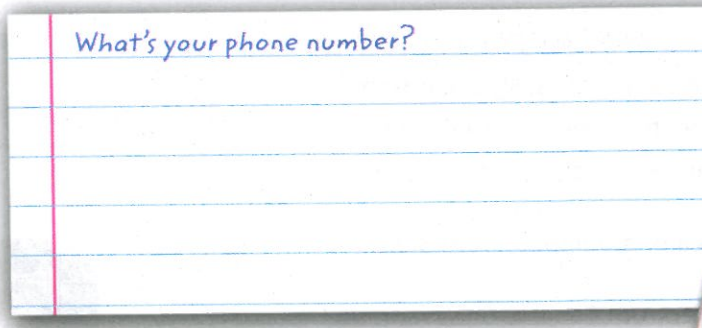 What's your phone number?